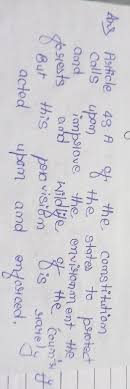 Ans Article 48 A of the constitution
calls upon the states to protect
and improve the environment the
forests and wildlife of the country
But this provision is rarely
acted upon and enforced.